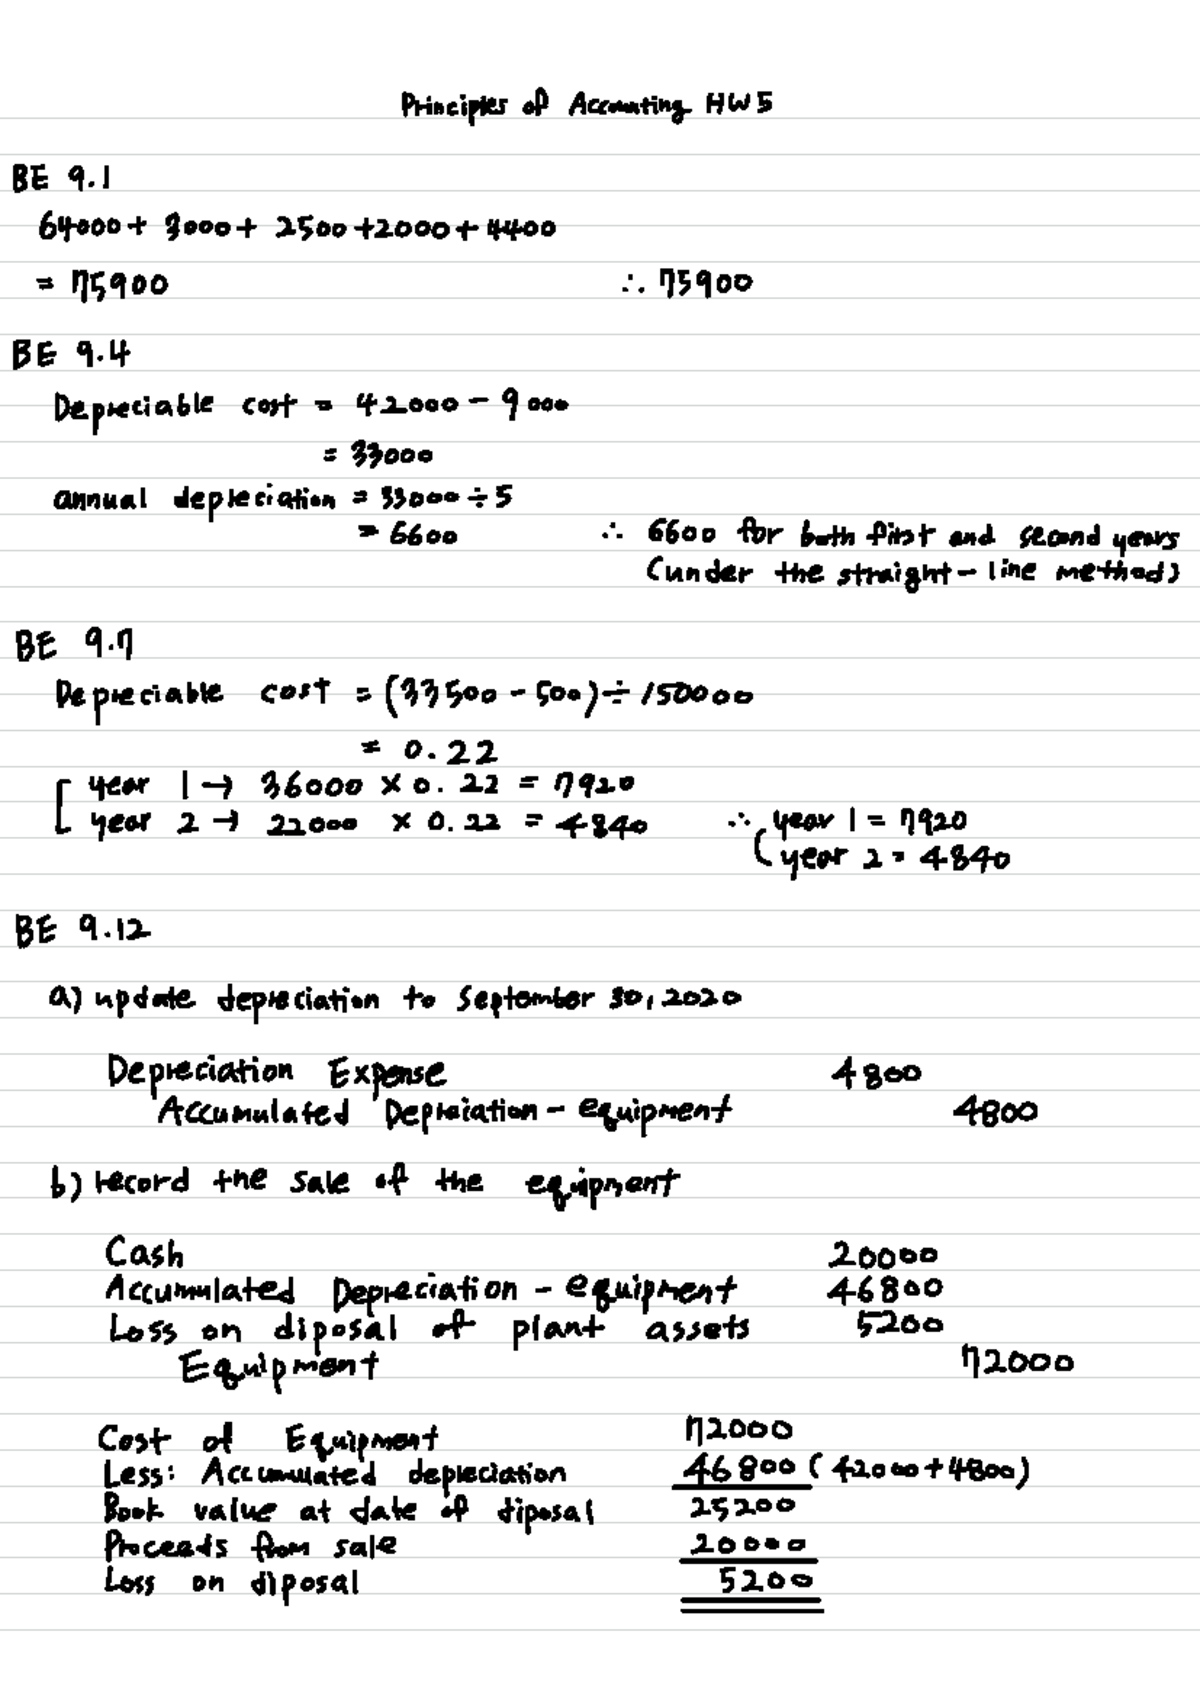 Principles of Accounting HW5
BE 9.1
64000 + 3000 + 2500 + 2000 + 4400
= 75900 ∴ 75900
BE 9.4
Depreciable cost = 42000 - 9000
= 33000
annual depreciation = 33000 ÷ 5
= 6600 ∴ 6600 for both first and second years
(under the straight-line method)
BE 9.7
Depreciable cost = (33500 - 500) ÷ 150000
= 0.22
[ year 1 → 36000 × 0.22 = 7920
year 2 → 22000 × 0.22 = 4840 ∴ year 1 = 7920
( year 2 = 4840
BE 9.12
a) update depreciation to September 30, 2020
Depreciation Expense 4800
Accumulated Depreciation - equipment 4800
b) record the sale of the equipment
Cash 20000
Accumulated Depreciation - equipment 46800
Loss on diposal of plant assets 5200
Equipment 72000
Cost of Equipment 72000
Less: Accumulated depreciation 46800 (42000+4800)
Book value at date of diposal 25200
Proceeds from sale 20000
Loss on diposal 5200